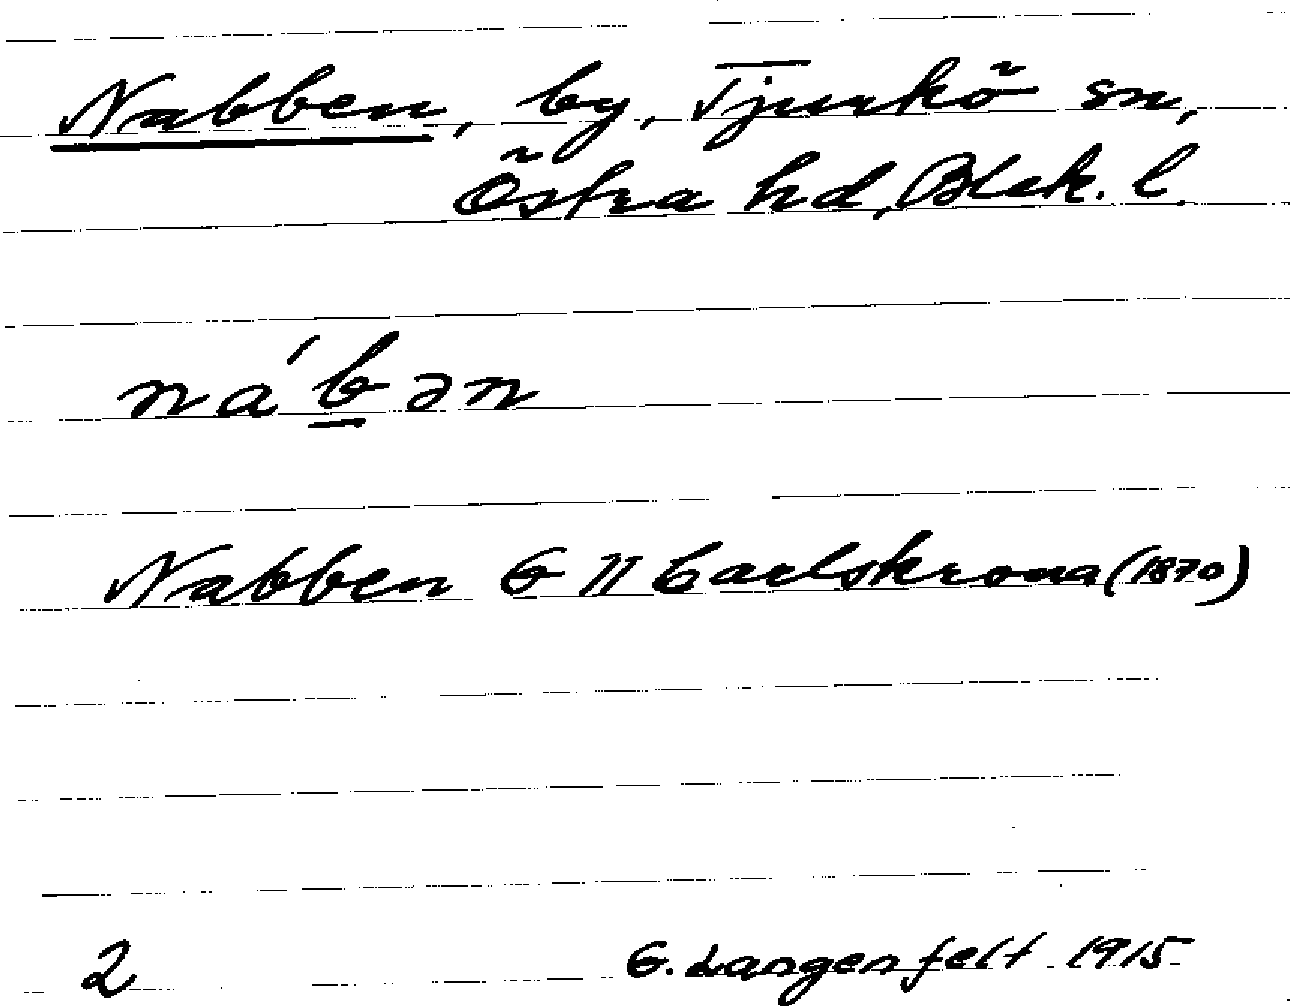 Nabben, by, Tjurkö sn,
Östra hd, Blek. l.
ná b̲ən
Nabben G II Carlskrona (1870)
2 G. Langenfelt 1915